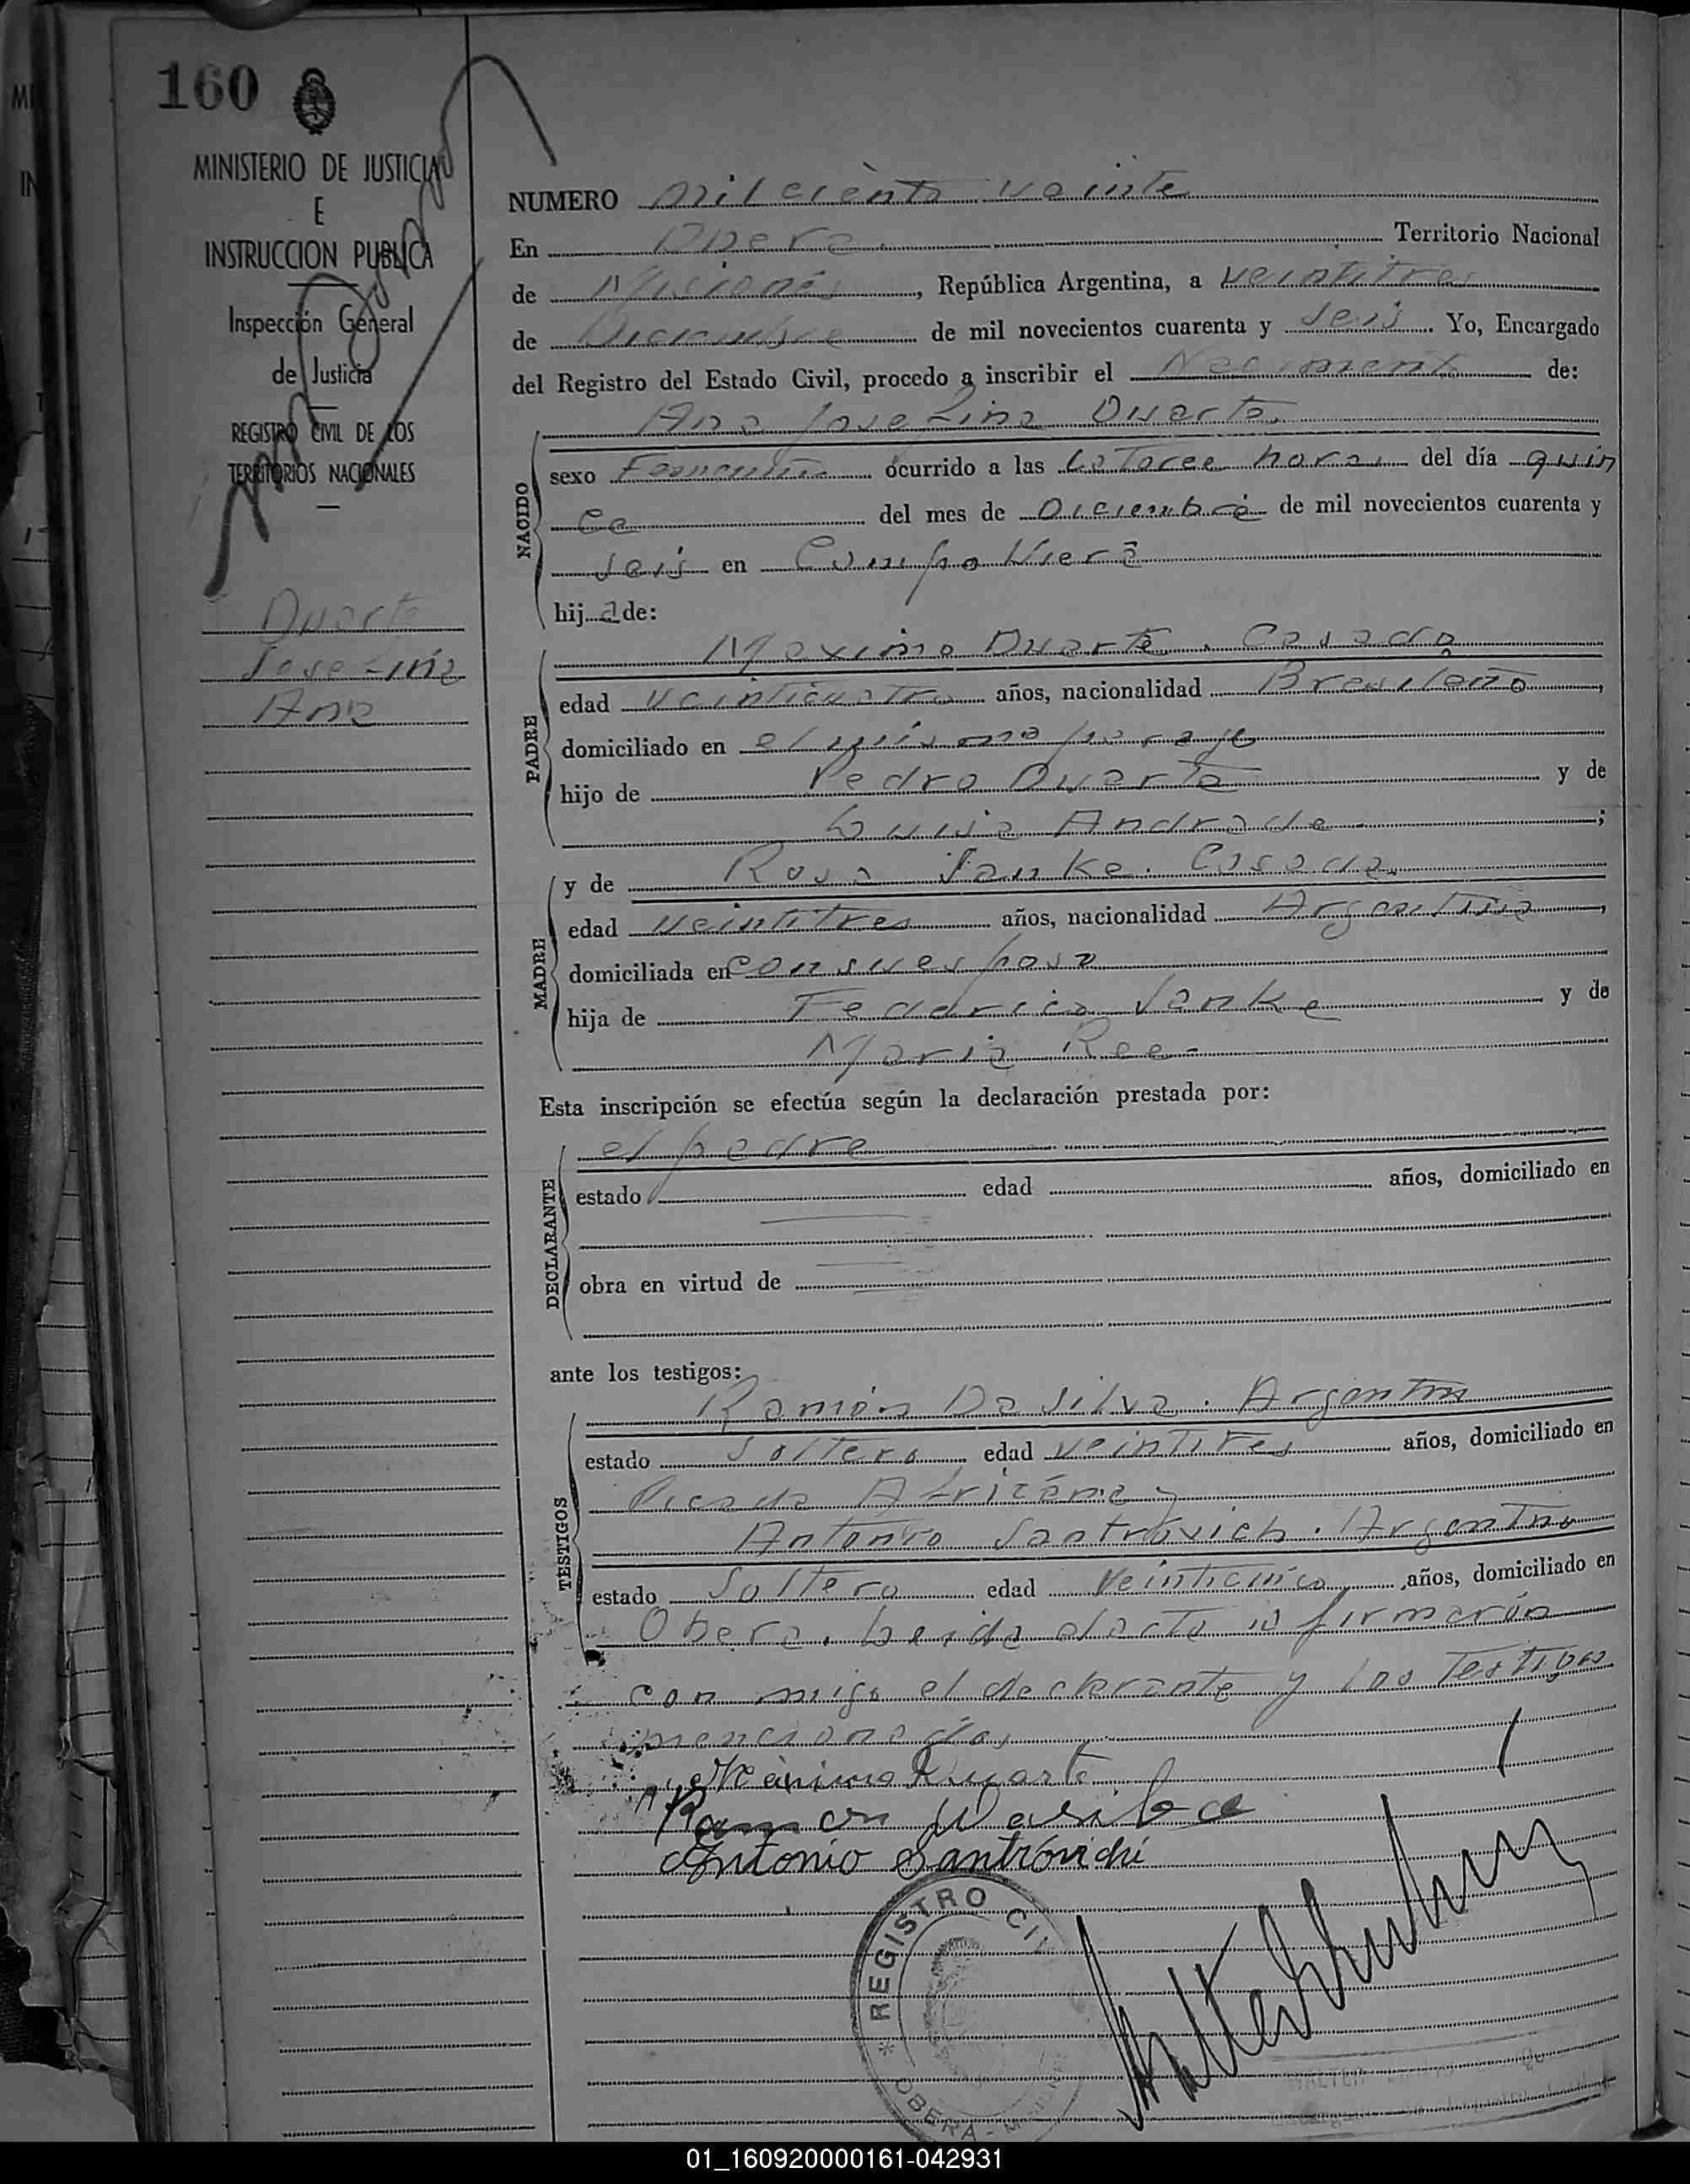 160
MINISTERIO DE JUSTICIA
E
INSTRUCCION PUBLICA
Inspección General
de Justicia
REGISTRO CIVIL DE LOS
TERRITORIOS NACIONALES
Duarte
Josefina
Ana
NUMERO mil ciento veinte
En Obera. Territorio Nacional
de Misiones, República Argentina, a veintitres
de Diciembre de mil novecientos cuarenta y seis. Yo, Encargado
del Registro del Estado Civil, procedo a inscribir el Nacimiento de:
Ana Josefina Duarte.
NACIDO
sexo Femenino ocurrido a las Catorce horas del día quin
ce del mes de Diciembre de mil novecientos cuarenta y
seis en Campo Viera
hija de:
PADRE
Maximo Duarte. Casado
edad veinticuatro años, nacionalidad Brasileño,
domiciliado en el mismo paraje
hijo de Pedro Duarte y de
Luisa Andrade;
MADRE
y de Rosa Janke. Casada.
edad veintitres años, nacionalidad Argentina,
domiciliada en con su esposo
hija de Federico Janke y de
Maria Ree-
Esta inscripción se efectúa según la declaración prestada por:
DECLARANTE
el padre
estado edad años, domiciliado en
obra en virtud de
ante los testigos:
TESTIGOS
Ramón Da Silva. Argentino
estado Soltero edad veintitres años, domiciliado en
Picada Africana y
Antonio Santrovich. Argentino
estado Soltero edad Veinticinco, años, domiciliado en
Obera. Leida el acta la firmarón
con migo el declarante y los Testigos
mencionados
Maximo Duarte
Ramon Dasilva
Antonio Santrovichi
REGISTRO CIVIL
OBERA -
WALTER
01_160920000161-042931